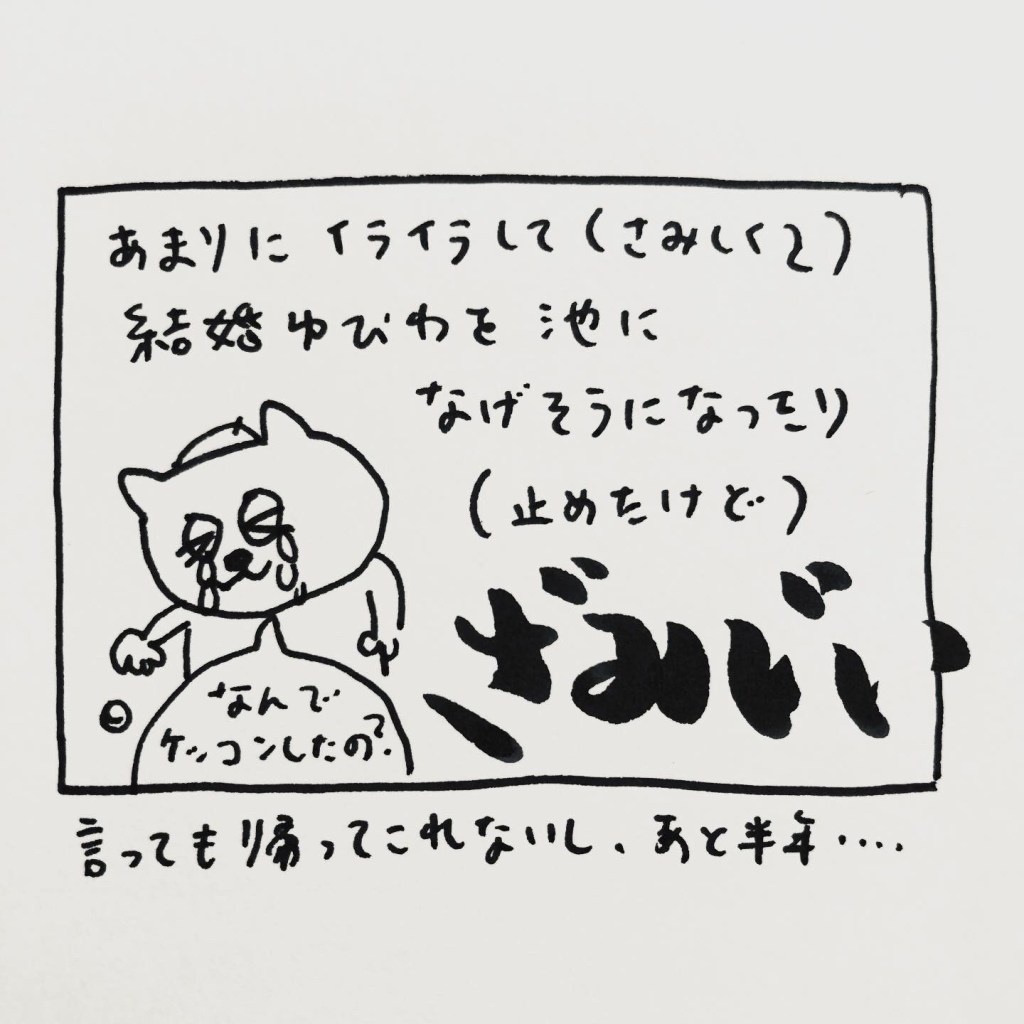 あまりにイライラして(さみしくて)
結婚ゆびわを池に
なげそうになったり
(止めたけど)
ざみじい
なんで
ケッコンしたの?
言っても帰ってこれないし、あと半年・・・・